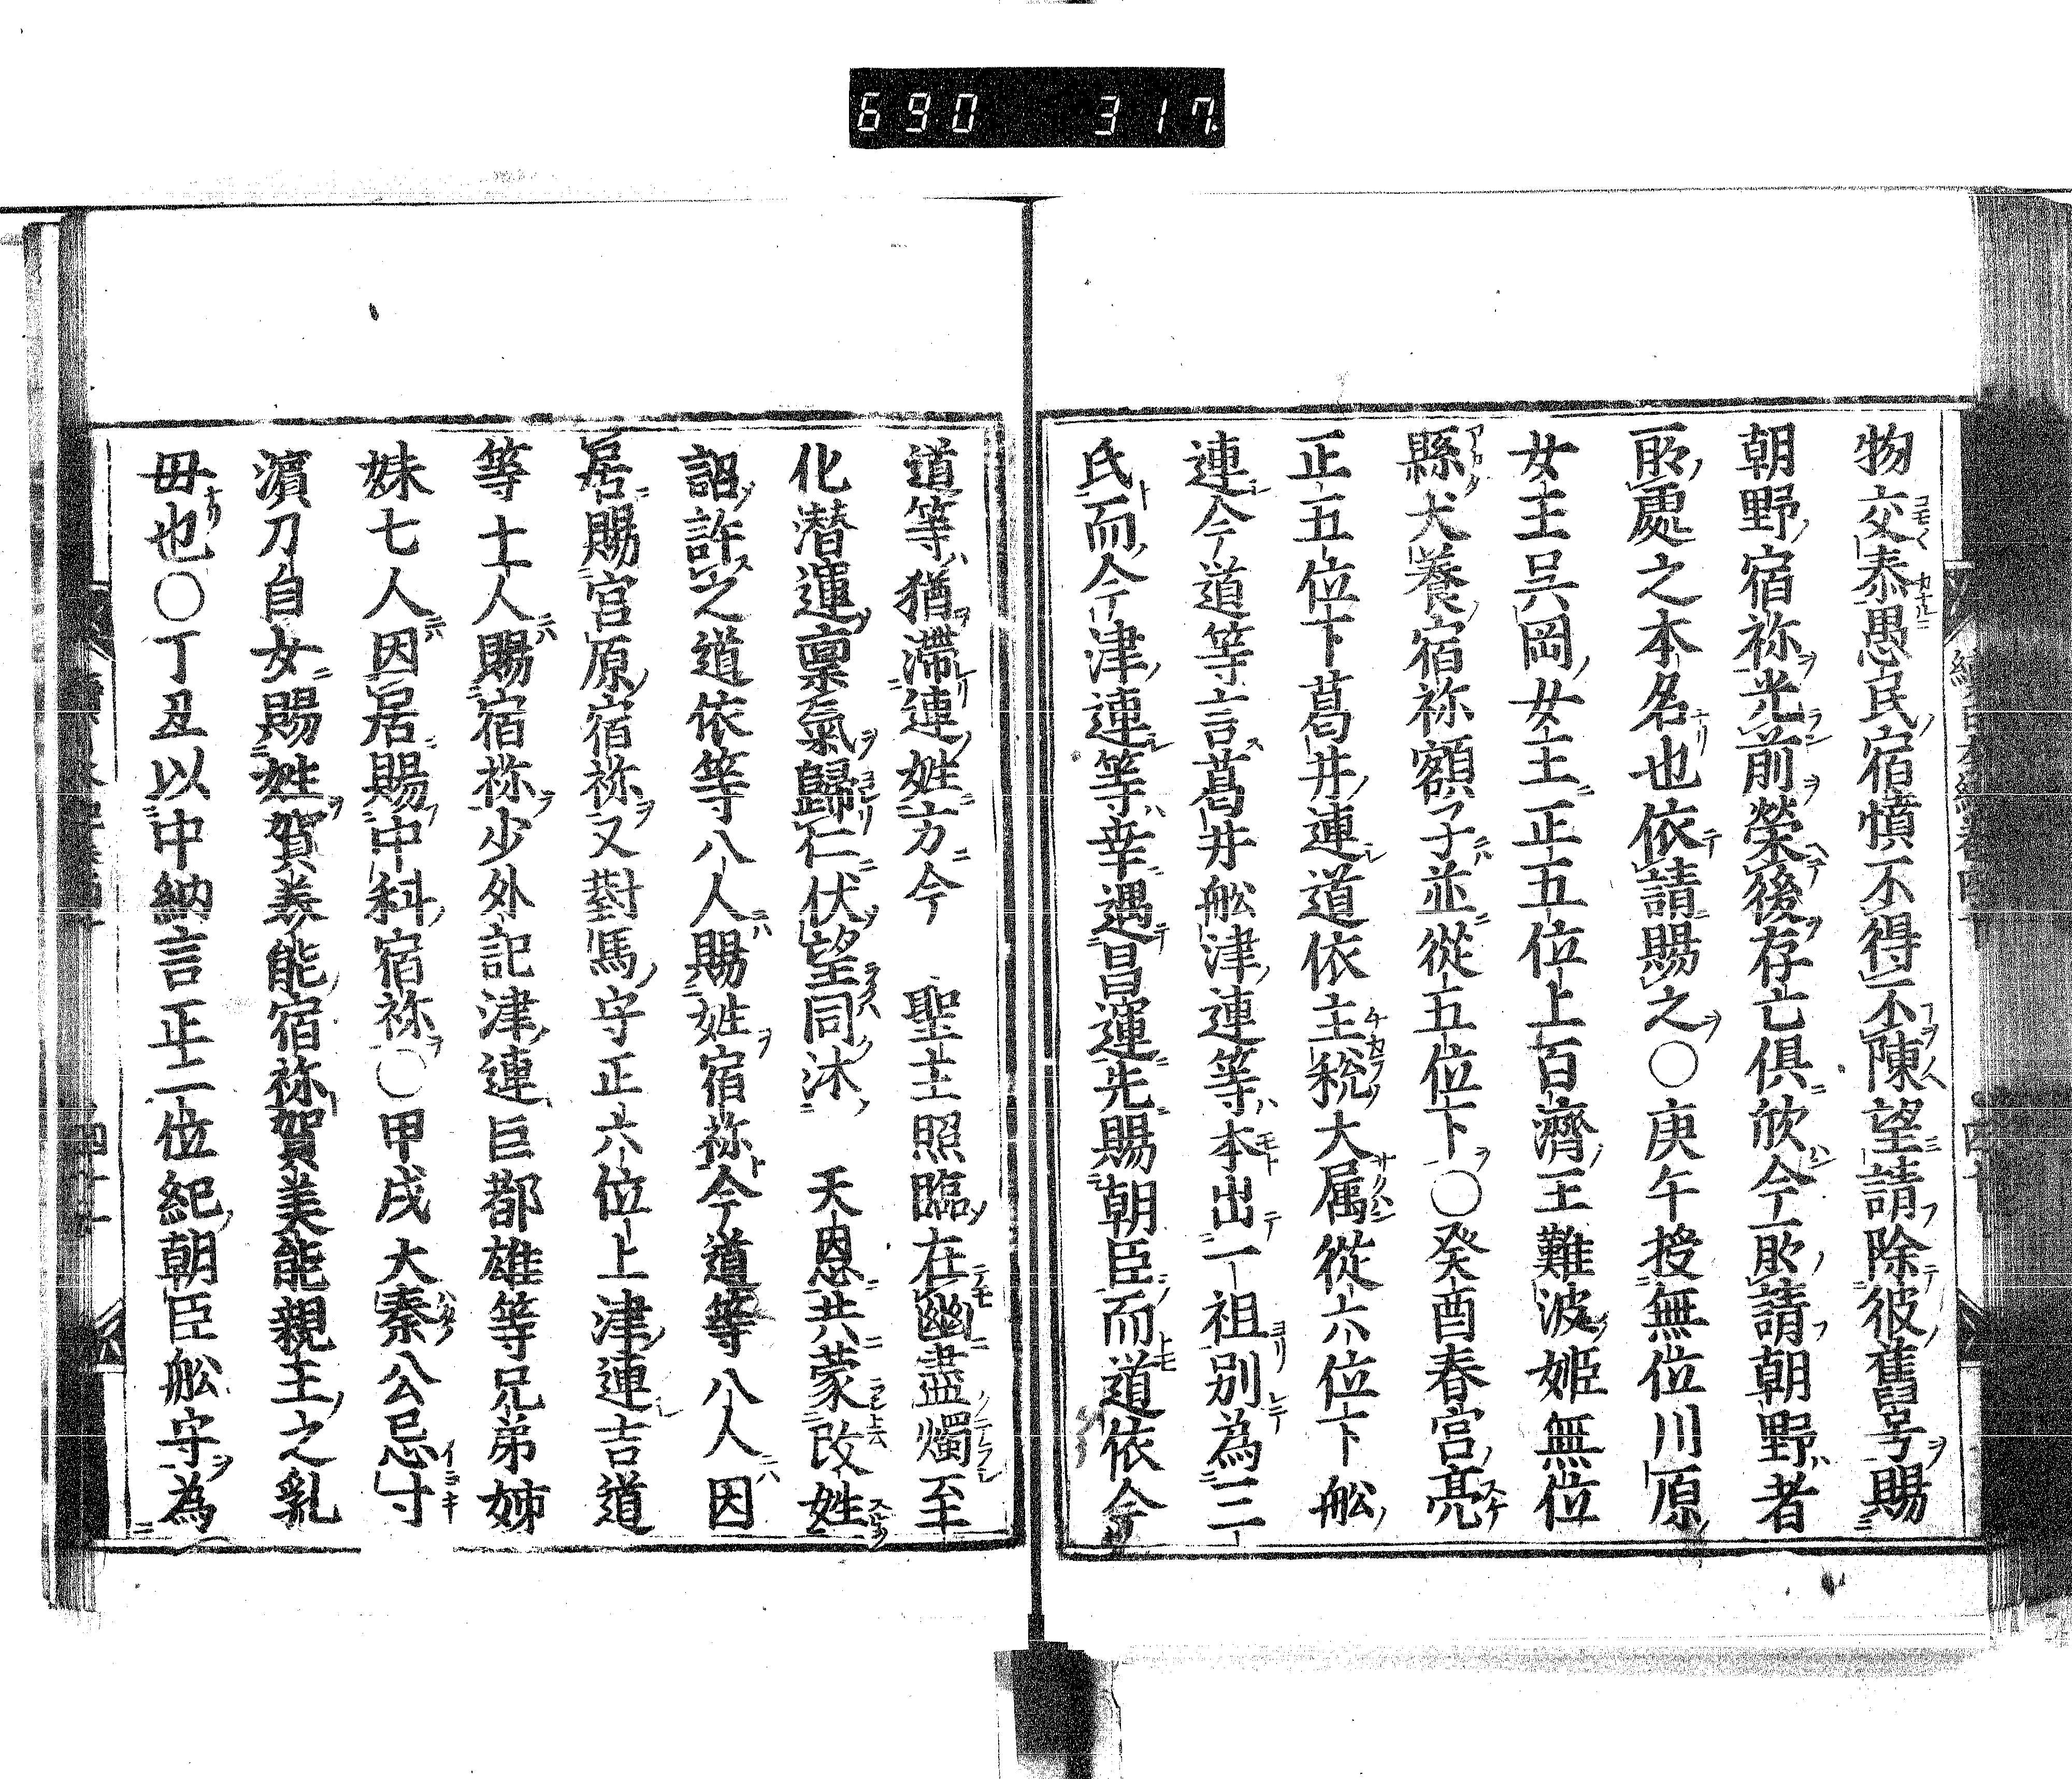 690 317
物交泰愚民宿憤不得不陳望請除彼舊号賜
朝野宿祢光前榮後存亡俱欣今所請朝野者
所處之本名也依請賜之〇庚午授無位川原
女王呉岡女王正五位上百濟王難波姫無位
縣犬養宿祢額子並從五位下〇癸酉春宮亮
正五位下葛井連道依主税大属從六位下舩
連今道等言葛井舩津連等本出一祖別為三
氏而今津連等幸遇昌運先賜朝臣而道依今
道等猶滯連姓方今　聖主照臨在幽盡燭至
化潜運稟氣歸仁伏望同沐　天恩共蒙改姓
詔許之道依等八人賜姓宿祢今道等八人因
居賜宮原宿祢又對馬守正六位上津連吉道
等十人賜宿祢少外記津連巨都雄等兄弟姉
妹七人因居賜中科宿祢〇甲戌大秦公忌寸
濱刀自女賜姓賀美能宿祢賀美能親王之乳
毋也〇丁丑以中納言正三位紀朝臣舩守為